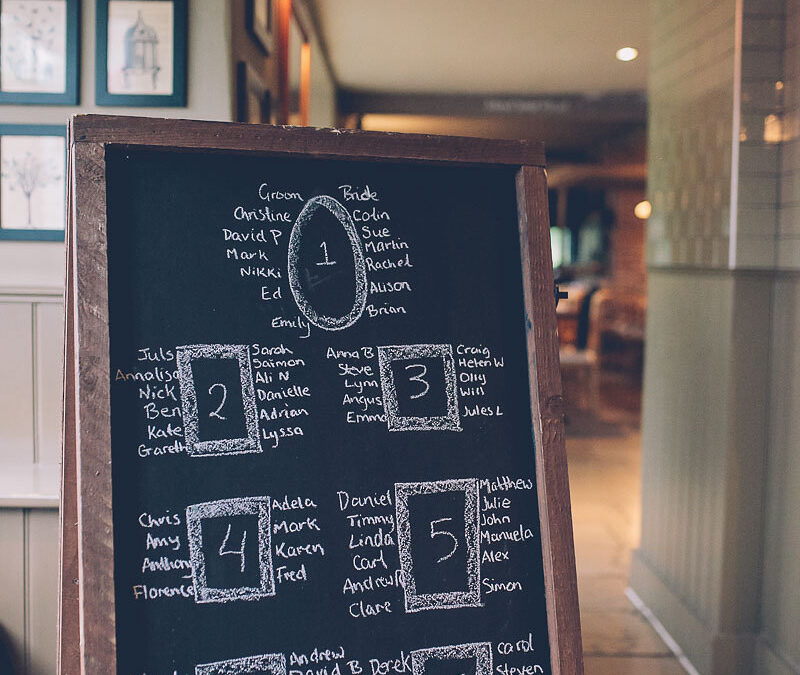 Groom Bride
Christine Colin
David P Sue
Mark 1 Martin
Nikki Rachel
Ed Alison
Emily Brian
Juls Sarah
Annalisa Saimon
Nick 2 Ali N
Ben Danielle
Kate Adrian
Gareth Lyssa
Anna B Craig
Steve Helen W
Lynn 3 Olly
Angus Will
Emma Jules L
Chris Adela
Amy 4 Mark
Anthony Karen
Florence Fred
Daniel Matthew
Timmy Julie
Linda 5 John
Carl Manuela
Andrew R Alex
Clare Simon
Andrew
David B
Derek Carol
Steven